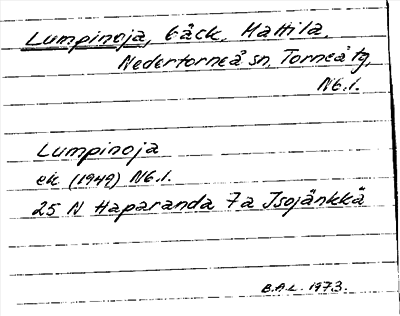 Lumpinoja, bäck, Mattila.
Nedertorneå sn, Torneå tg,
Nb.l.
Lumpinoja
ek (1949) Nb.l.
25 N Haparanda 7a Isojänkkä
B.A.L. 1973.